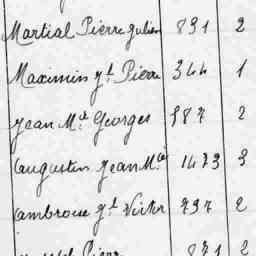 Martial Pierre Julien 831 2
Maximin J.h Pierre 344 1
Jean M.ie Georges 887 2
Augustin Jean M.ie 1473 3
Ambroise J.h Victor 737 2
Pierre 871 2